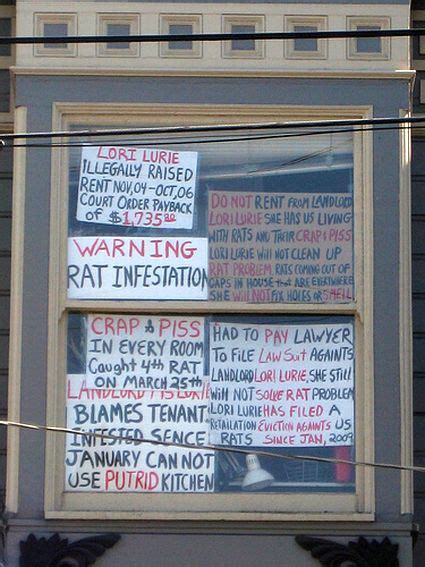 LORI LURIE
ILLEGALLY RAISED
RENT NOV,04-OCT,06
COURT ORDER PAYBACK
OF $1,735
WARNING
RAT INFESTATION
DO NOT RENT FROM LANDLORD
LORI LURIE SHE HAS US LIVING
WITH RATS AND THEIR CRAP & PISS
LORI LURIE WILL NOT CLEAN UP
RAT PROBLEM. RATS COMING OUT OF
GAPS IN HOUSE that ARE EVERYWHERE
SHE WILL NOT FIX HOLES OR SMELL
CRAP & PISS
IN EVERY ROOM
Caught 4th RAT
ON MARCH 25th
LANDLORD LURIE
BLAMES TENANT
INFESTED SENCE
JANUARY CAN NOT
USE PUTRID KITCHEN
HAD TO PAY LAWYER
TO FILE LAW SUIT AGAINTS
LANDLORD LORI LURIE, SHE STILL
WILL NOT SOLVE RAT PROBLEM
LORI LURIE HAS FILED A
RETAILATION EVICTION AGAINTS US
RATS SINCE JAN, 2009